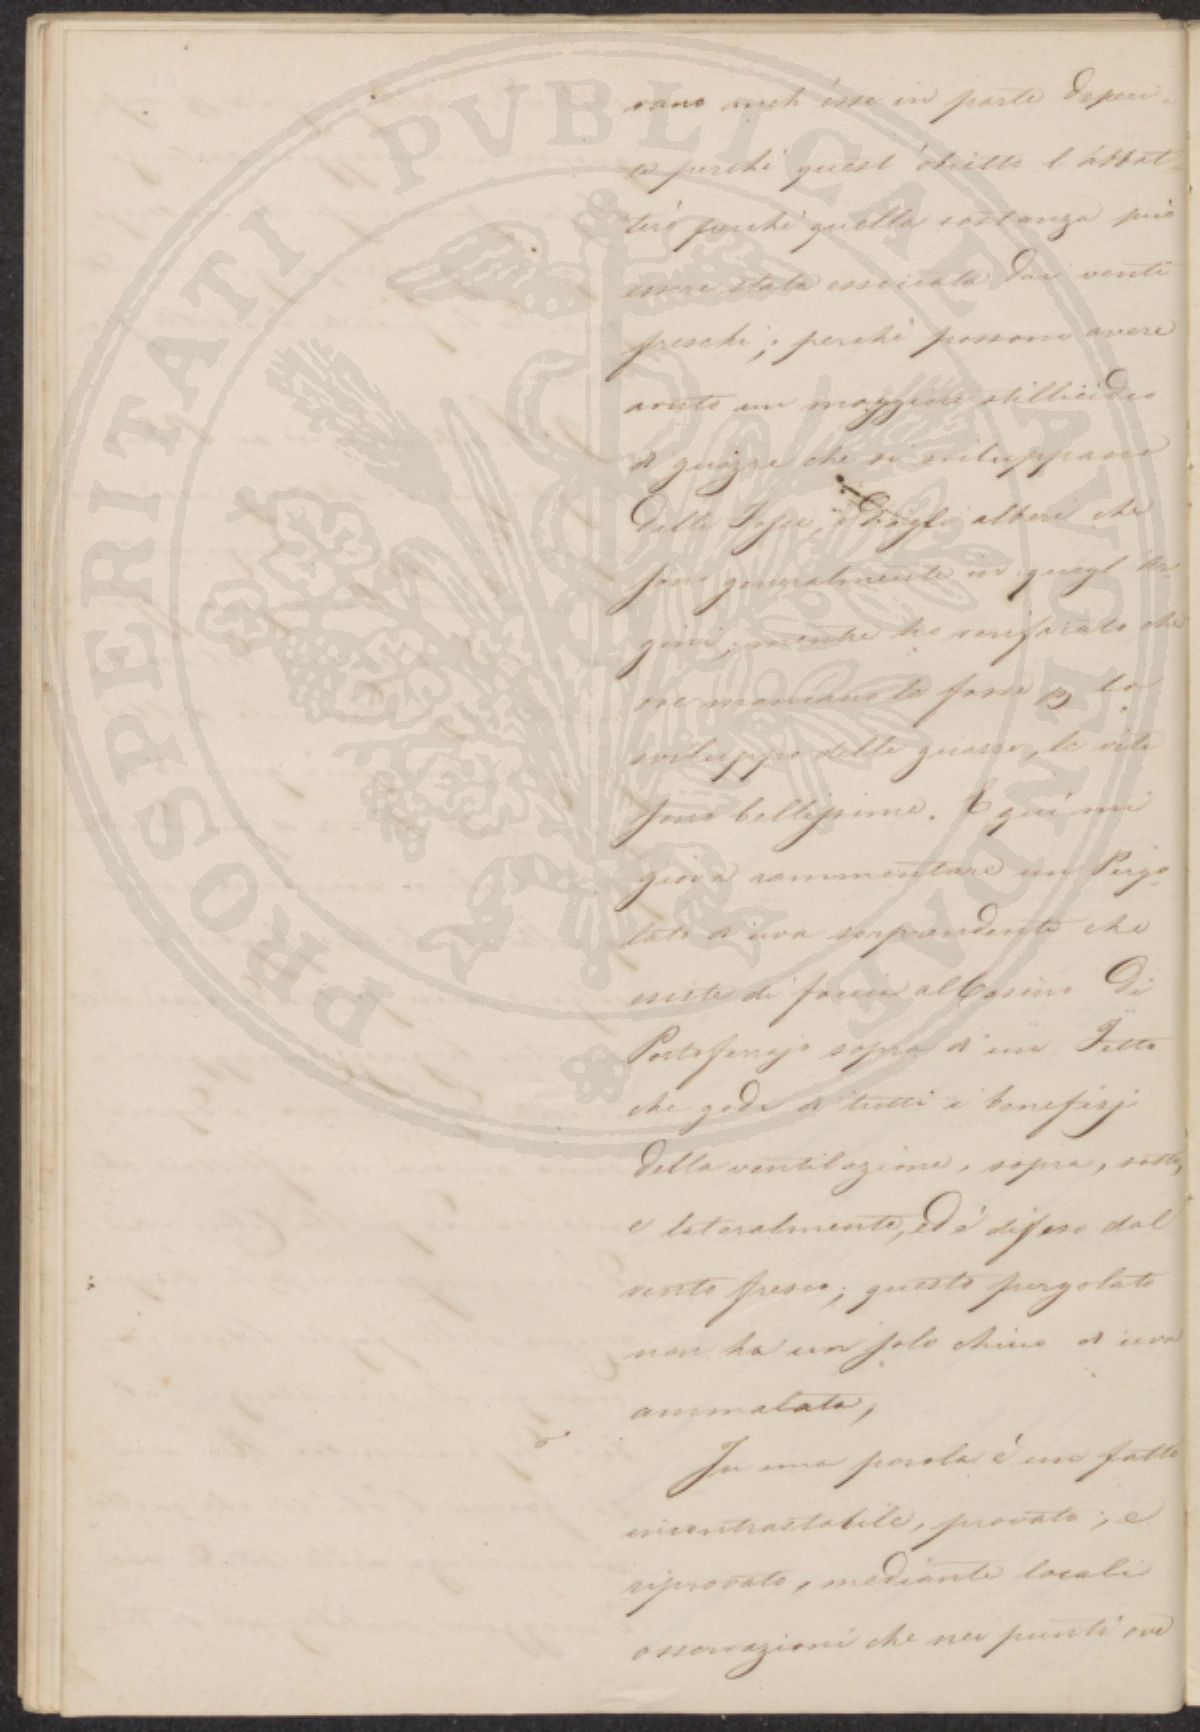 PROSPERITATI PUBLICAE AUGENDAE
vano anch'esse in parte deperi-
te perchè quest'obietto l'abbat-
terò perchè quella sostanza può
essere stata essiccata dai venti
freschi; perchè possono avere
avuto un maggiore stillicidio
di guazze che si sviluppano
dalle Fosse, e dagli alberi che
sono generalmente in quegl'Ar-
gini, mentre ho verificato che
ove mancano le fosse per lo
sviluppo delle guazze, le viti
sono bellissime. E quì mi
giova rammentare un Pergo-
lato d'uva sorprendente che
esiste di faccia al Casino di
Portoferrajo sopra d'un Tetto
che gode di tutti i benefizj
della ventilazione, sopra, sotto,
e lateralmente, ed è difeso dal
vento fresco; questo pergolato
non ha un solo chicco d'uva
ammalata;
In una parola è un fatto
incontrastabile, provato, e
riprovato, mediante locali
osservazioni che nei punti ove